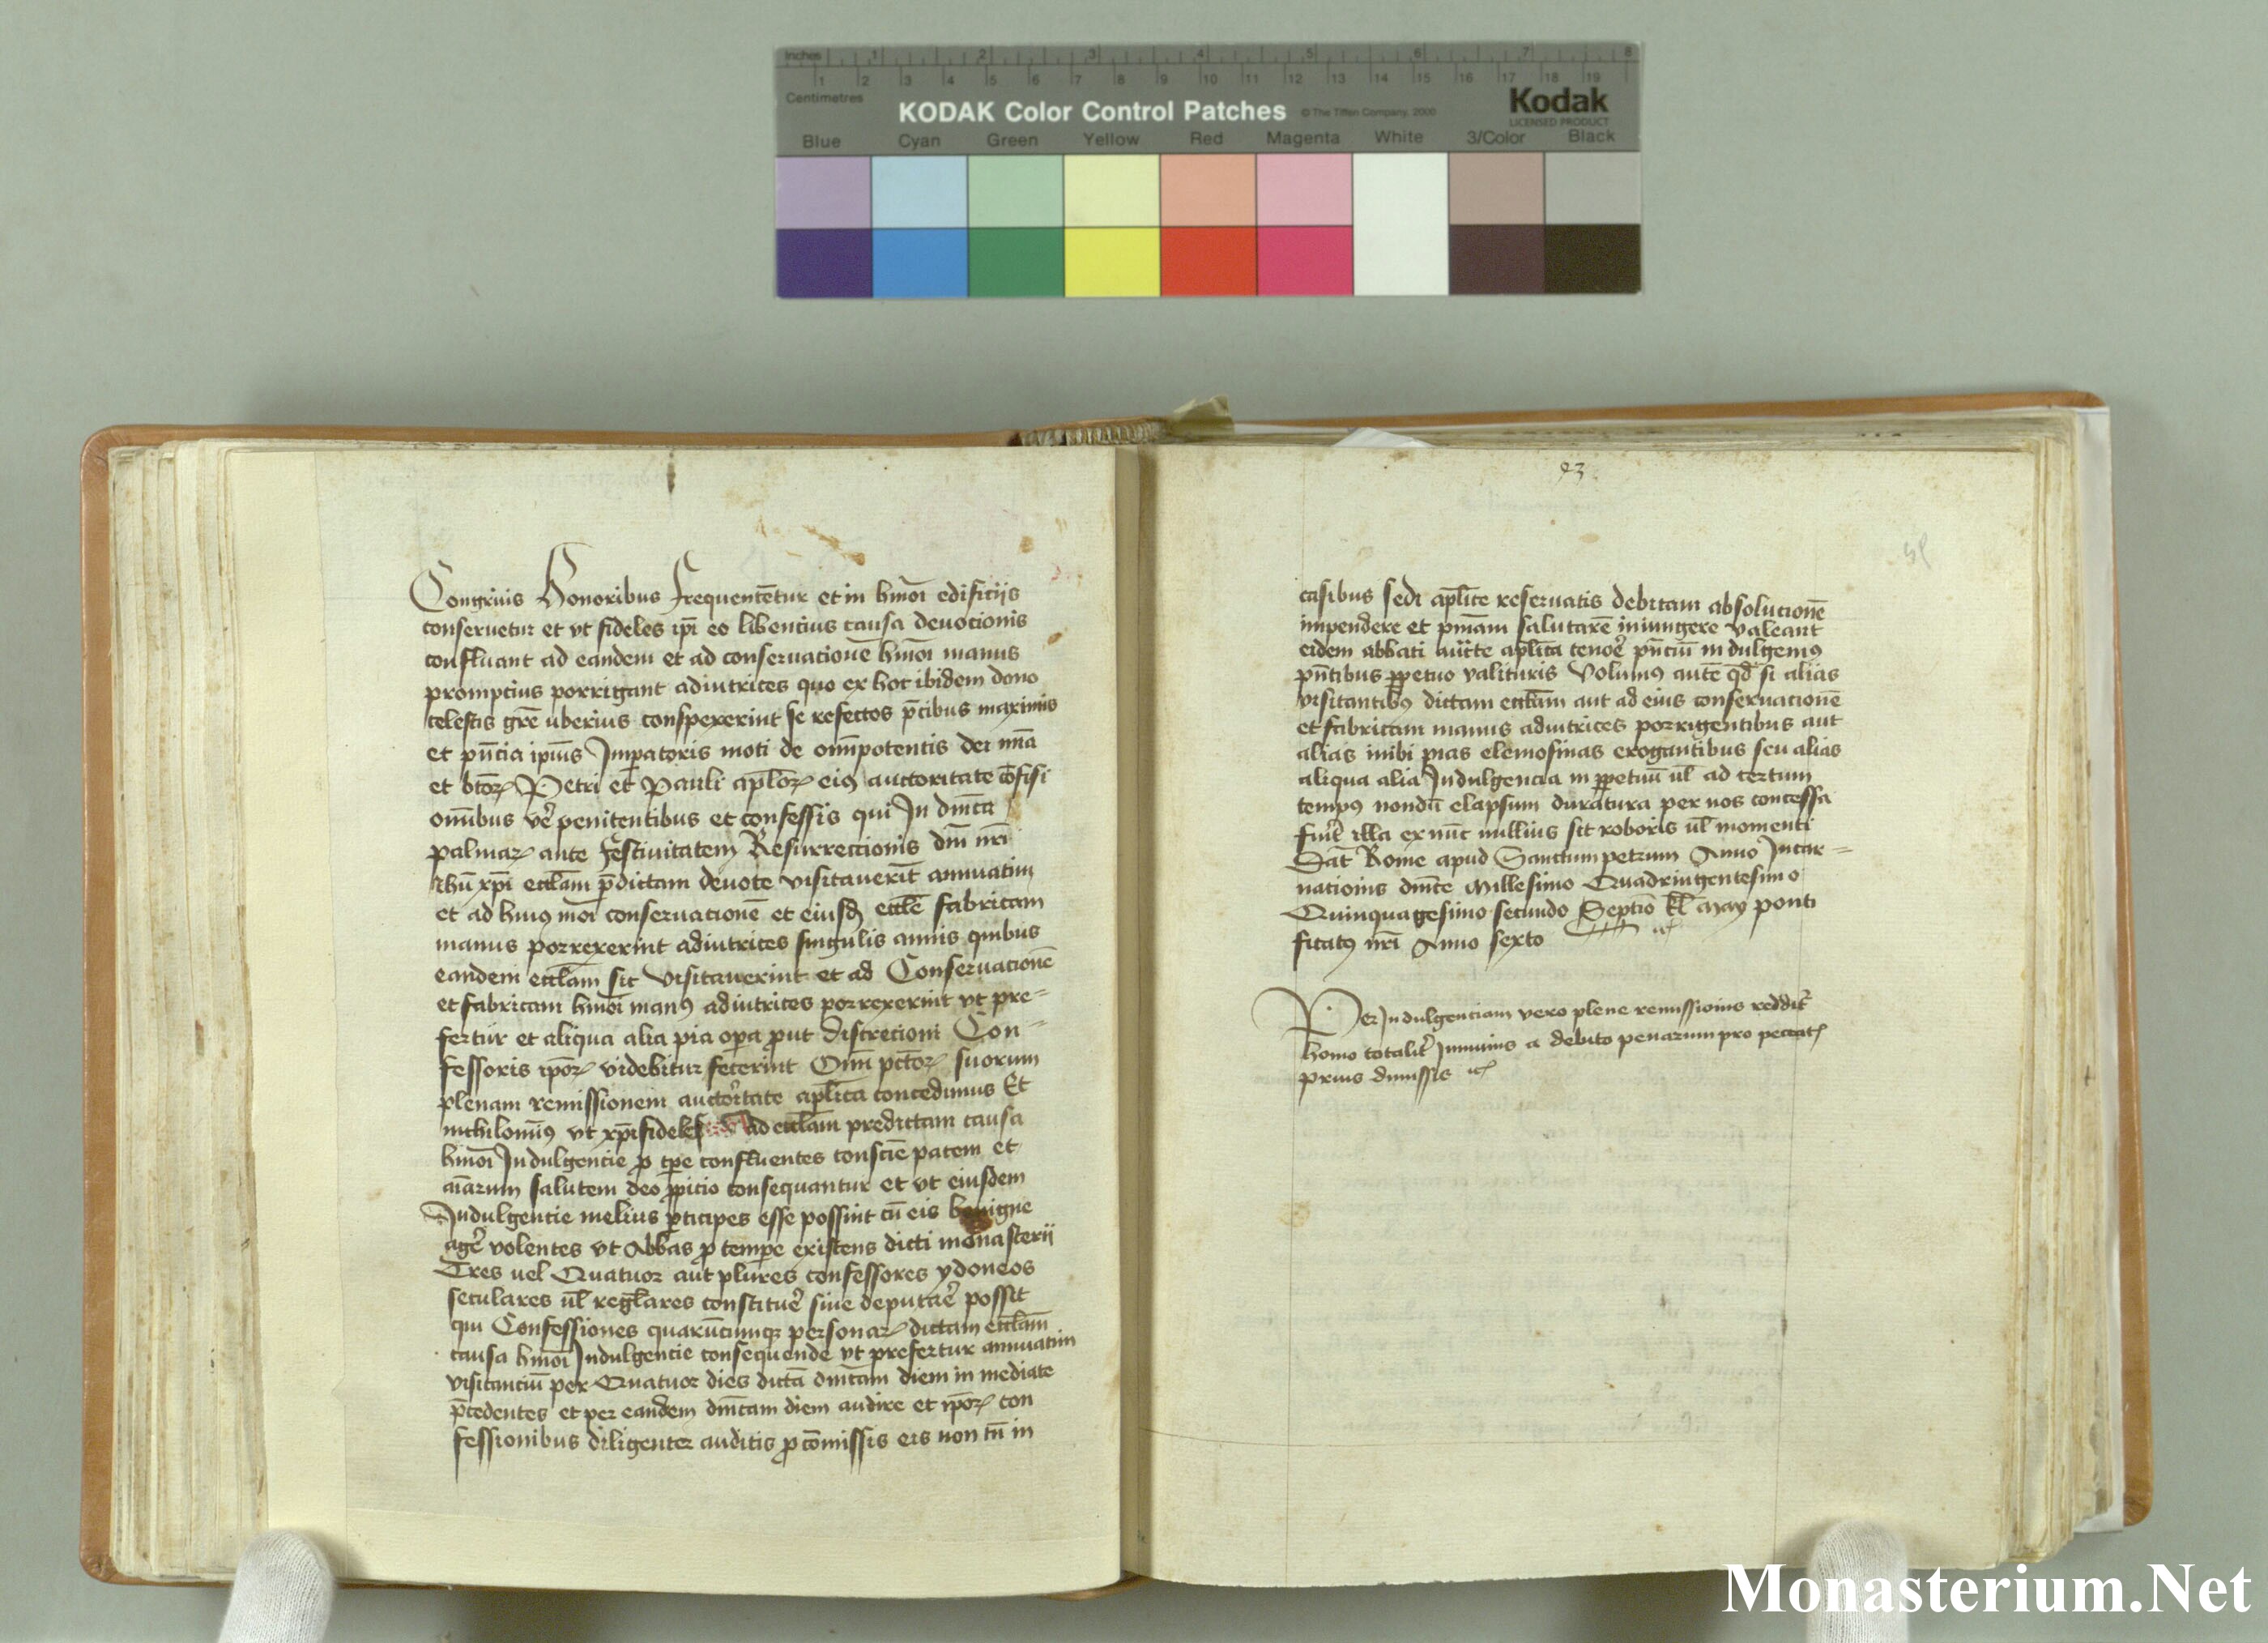 Inches 1 2 3 4 5 6 7 8
1 2 3 4 5 6 7 8 9 10 11 12 13 14 15 16 17 18 19
Centimetres
KODAK Color Control Patches © The Tiffen Company, 2000 Kodak
LICENSED PRODUCT
Blue Cyan Green Yellow Red Magenta White 3/Color Black
Congruis Honoribus frequentētur et in hmōi edificijs
conseruetur et vt fideles ip̄i eo libencius causa deuocionis
confluant ad eandem et ad conseruacionē hmōi manus
prompcius porrigant adiutrices quo ex hoc ibidem dono
celestis grē uberius conspexerint se refectos p̄cibus maximis
et pn̄cia ip̄ius Impatoris moti de omīpotentis dei mīa
et btōꝝ Petri et Pauli aplōꝝ eiꝰ auctoritate cōfisi
omībus vē penitentibus et confessis qui In dnīca
palmaꝝ ante festiuitatem Resurrectionis dnī nrī
Ihū xp̄i ecclām p̄dictam deuote visitauerīt annuatim
et ad huiꝰmōi conseruacionē et eiusdꝫ ecclē fabricam
manus porrexerint adiutrices singulis annis quibus
eandem ecclām sic visitauerint et ad Conseruacionē
et fabricam hmōi manꝰ adiutrices porrexerint vt pre=
fertur et aliqua alia pia opa ꝓut discrecioni Con=
fessoris ipōꝝ videbitur fecerint Omī pctōꝝ suorum
plenam remissionem auctoritate aplīca concedimus Et
nichilomīꝰ vt xp̄ifideles ad ecclām predictam causa
hmōi Indulgencie ꝓ tpe confluentes consciē pacem et
aīarum salutem deo ꝓpicio consequantur et vt eiusdem
Indulgencie melius pticipes esse possint cū eis benigne
agē volentes vt Abbas ꝓ tempe existens dicti monasterij
Tres uel Quatuor aut plures confessores ydoneos
seculares ul̄ regl̄ares constituē siue deputāe possit
qui Confessiones quarūcunqꝫ personaꝝ dictam ecclām
causa hmōi Indulgencie consequende vt prefertur annuatim
visitanciū per Quatuor dies dictā dnīcam diem in mediate
p̄cedentes et per eandem dnīcam diem audire et ipōꝝ con
fessionibus diligenter auditis ꝓ cōmissis eis non tn̄ in
93
casibus sedi aplīce reseruatis debitam absolucionē
impendere et pnīam salutarē iniungere valeant
eidem abbati auc̄te aplīca tenoē pn̄ciū indulgemꝰ
pn̄tibus ꝑpetuo valituris Volumꝰ autē qd̄ si alias
visitantibꝰ dictam ecclām aut ad eius conseruacionē
et fabricam manus adiutrices porrigentibus aut
alias inibi pias elemosinas erogantibus seu alias
aliqua alia Indulgencia in ꝑpetuū ul̄ ad certum
tempꝰ nondū elapsum duratura per nos concessa
fuīt illa ex nūc nullius sit roboris ul̄ momenti
Dat̄ Rome apud Sanctum petrum Anno Incar=
nacionis dnīce Millesimo Quadringentesimo
Quinquagesimo secundo Septīo kl̄ May ponti
ficatꝰ nrī Anno sexto
Per Indulgenciam vero plene remissionis reddit̄
homo totalit̄ Immunis a debito penarum pro peccatꝭ
prius dimissis
Monasterium.Net